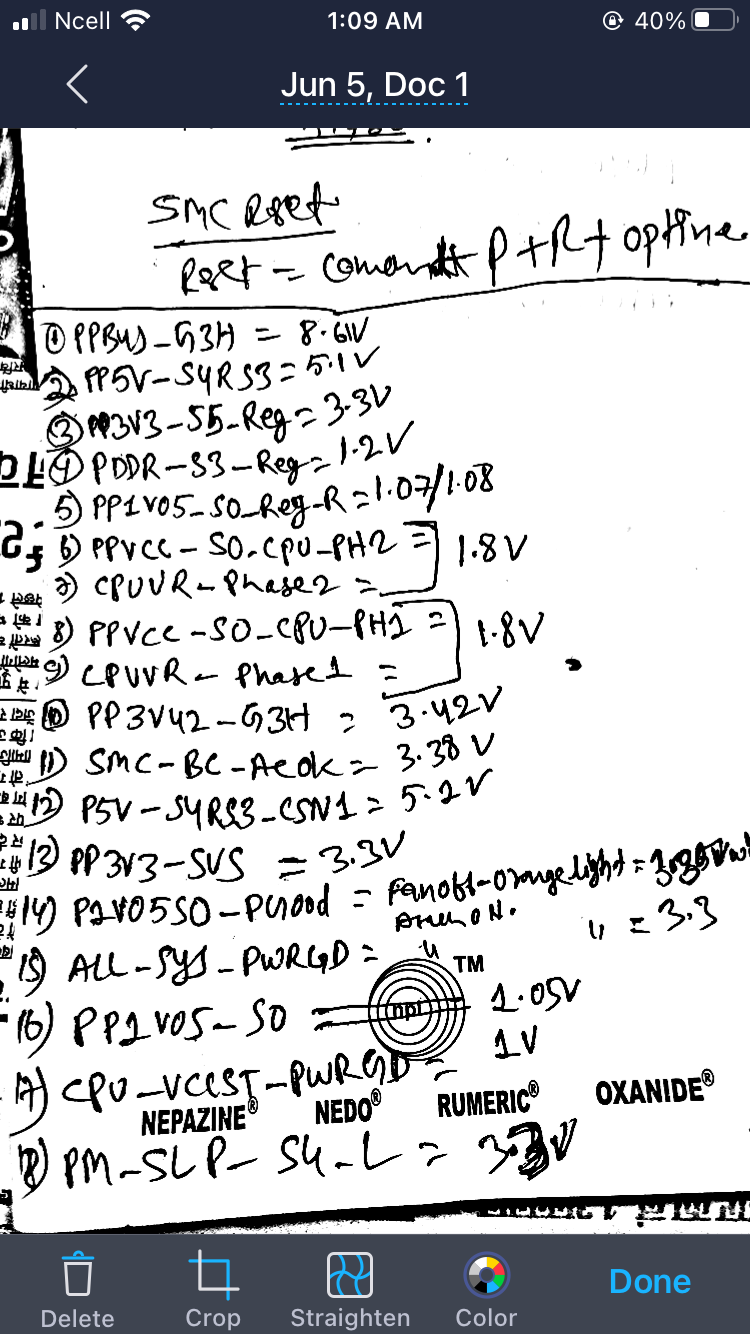 Ncell 1:09 AM 40%
Jun 5, Doc 1
SMC Rset
Rset = Comandt P+R+ optine
① PPBUS-G3H = 8.61V
② PP5V-S4RS3 = 5.1V
③ PP3V3-S5-Reg = 3.3V
④ PDDR-S3-Reg = 1.2V
5) PP1V05-S0-Reg-R = 1.07/1.08
6) PPVCC-S0-CPU-PH2 = 1.8V
7) CPUVR-Phase2 =
8) PPVCC-S0-CPU-PH1 = 1.8V
9) CPUVR-Phase1 =
⑩ PP3V42-G3H = 3.42V
11) SMC-BC-Acok = 3.38V
12) P5V-S4RS3-CSN1 = 5.2V
13) PP3V3-SUS = 3.3V
14) P1V05S0-PGood = Fan off-Orange light =
15) ALL-SYS-PWRGD = " " = 3.3
TM
npl
16) PP1V05-S0 = 1.05V
17) CPU-VCCST-PWRGD = 1V
NEPAZINE® NEDO® RUMERIC® OXANIDE®
18) PM-SLP-S4-L = 3.3V
Delete Crop Straighten Color Done